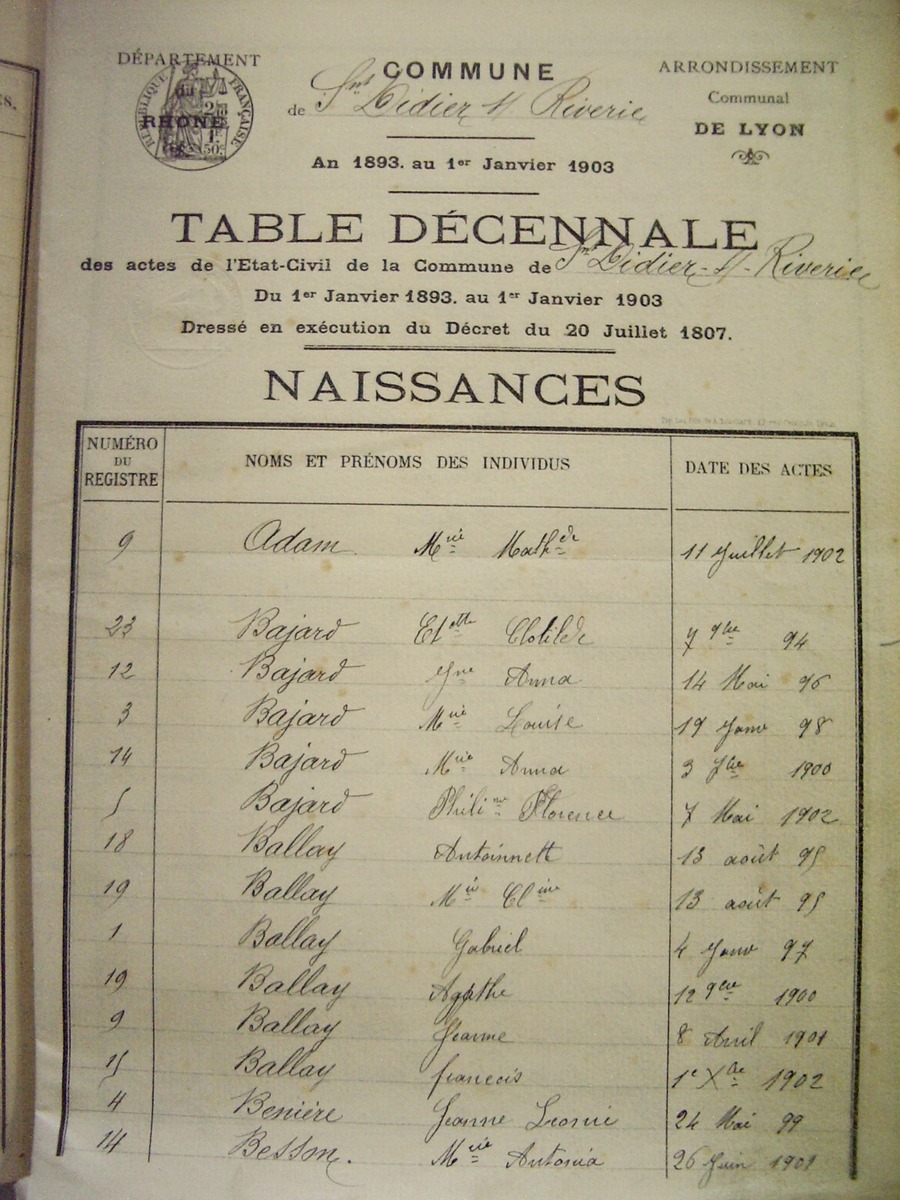 DÉPARTEMENT
du
RHÔNE
RÉPUBLIQUE FRANÇAISE
COMMUNE
de St Didier s/ Riverie
ARRONDISSEMENT
Communal
DE LYON
An 1893. au 1er Janvier 1903
TABLE DÉCENNALE
des actes de l'Etat-Civil de la Commune de St Didier-s/-Riverie
Du 1er Janvier 1893. au 1er Janvier 1903
Dressé en exécution du Décret du 20 Juillet 1807.
NAISSANCES
NUMÉRO DU REGISTRE NOMS ET PRÉNOMS DES INDIVIDUS DATE DES ACTES
9 Adam Mie Mathde 11 Juillet 1902
23 Bajard Etette Clotilde 7 9bre 94
12 Bajard Anna 14 Mai 96
3 Bajard Mie Louise 19 Janv 98
14 Bajard Mie Anna 3 1900
5 Bajard Philine Florence 7 Mai 1902
18 Ballay Antoinnett 13 août 95
19 Ballay Mie Cline 13 août 95
1 Ballay Gabriel 4 Janv 97
19 Ballay Agathe 12 9bre 1900
9 Ballay Jeanne 8 Avril 1901
15 Ballay francois 1e Xbre 1902
4 Benière Jeanne Leonie 24 Mai 99
14 Besson. Mie Antonia 26 Juin 1901